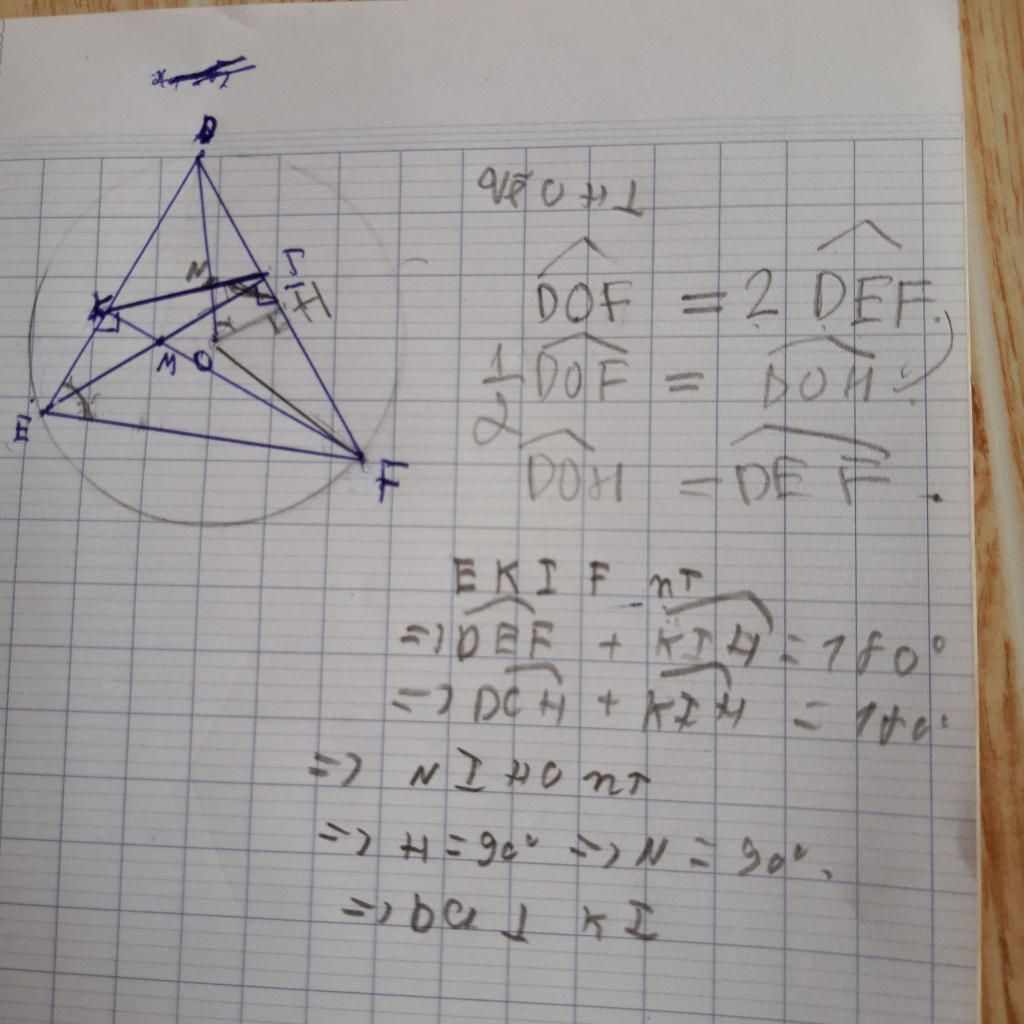 D
N
I
H
K
M
O
E
F
Vẽ OH ⊥
DOF = 2 DEF.
1/2 DOF = DOH.
DOH = DEF.
EKIF nT
=> DEF + KIH = 180°
=> DOH + KIH = 180°
=> NIHO nT
=> H = 90° => N = 90°.
=> DO ⊥ KI